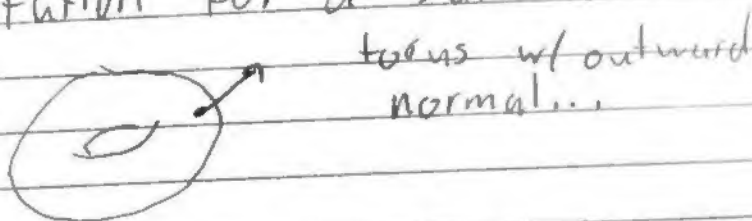 for a
torus w/ outward
normal...